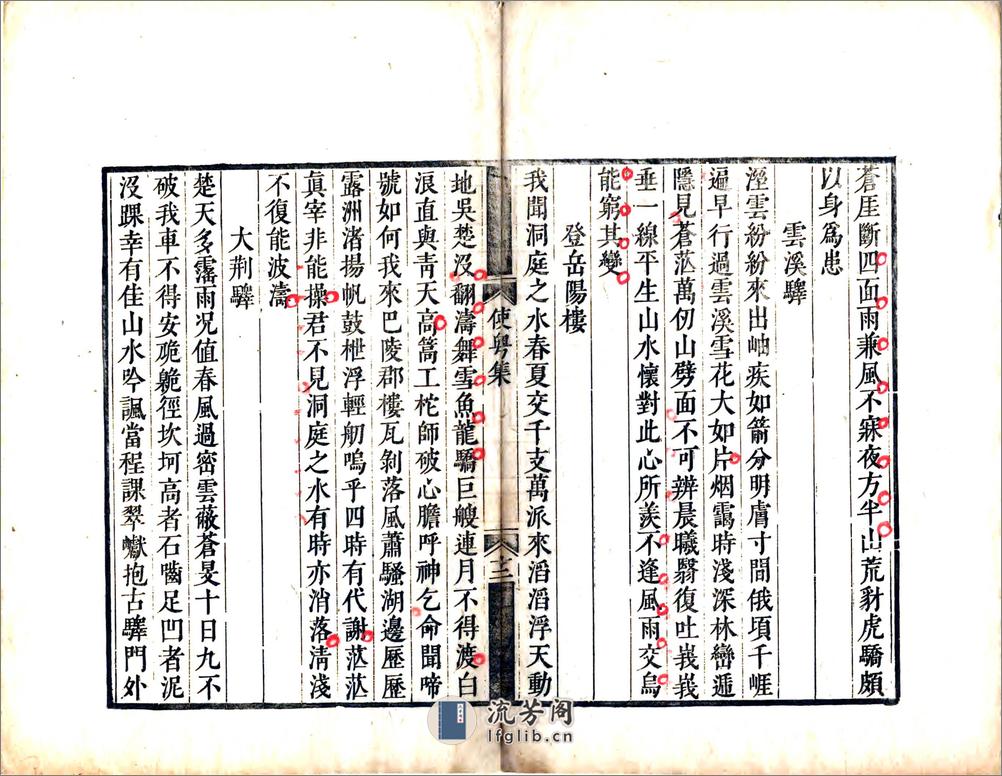 蒼厓斷四面雨兼風不寐夜方半山荒豺虎驕頗
以身爲患
雲溪驛
溼雲紛紛來出岫疾如箭分明膚寸間俄頃千崕
遍早行過雲溪雪花大如片烟靄時淺深林巒遞
隱見蒼茫萬仞山劈面不可辨晨曦翳復吐峩峩
垂一線平生山水懷對此心所羨不逢風雨交烏
能窮其變
登岳陽樓
我聞洞庭之水春夏交千支萬派來滔滔浮天動
使粵集
十二
地吳楚沒翻濤舞雪魚龍驕巨艘連月不得渡白
浪直與靑天高篙工柁師破心膽呼神乞命聞啼
號如何我來巴陵郡樓瓦剝落風蕭騷湖邊歷歷
露洲渚揚帆鼓枻浮輕舠嗚乎四時有代謝茫茫
眞宰非能操君不見洞庭之水有時亦消落淸淺
不復能波濤
大荆驛
楚天多霪雨况值春風過密雲蔽蒼旻十日九不
破我車不得安硊䡾徑坎坷高者石嚙足凹者泥
沒踝幸有佳山水吟諷當程課翠巘抱古驛門外
流芳阁
lfglib.cn